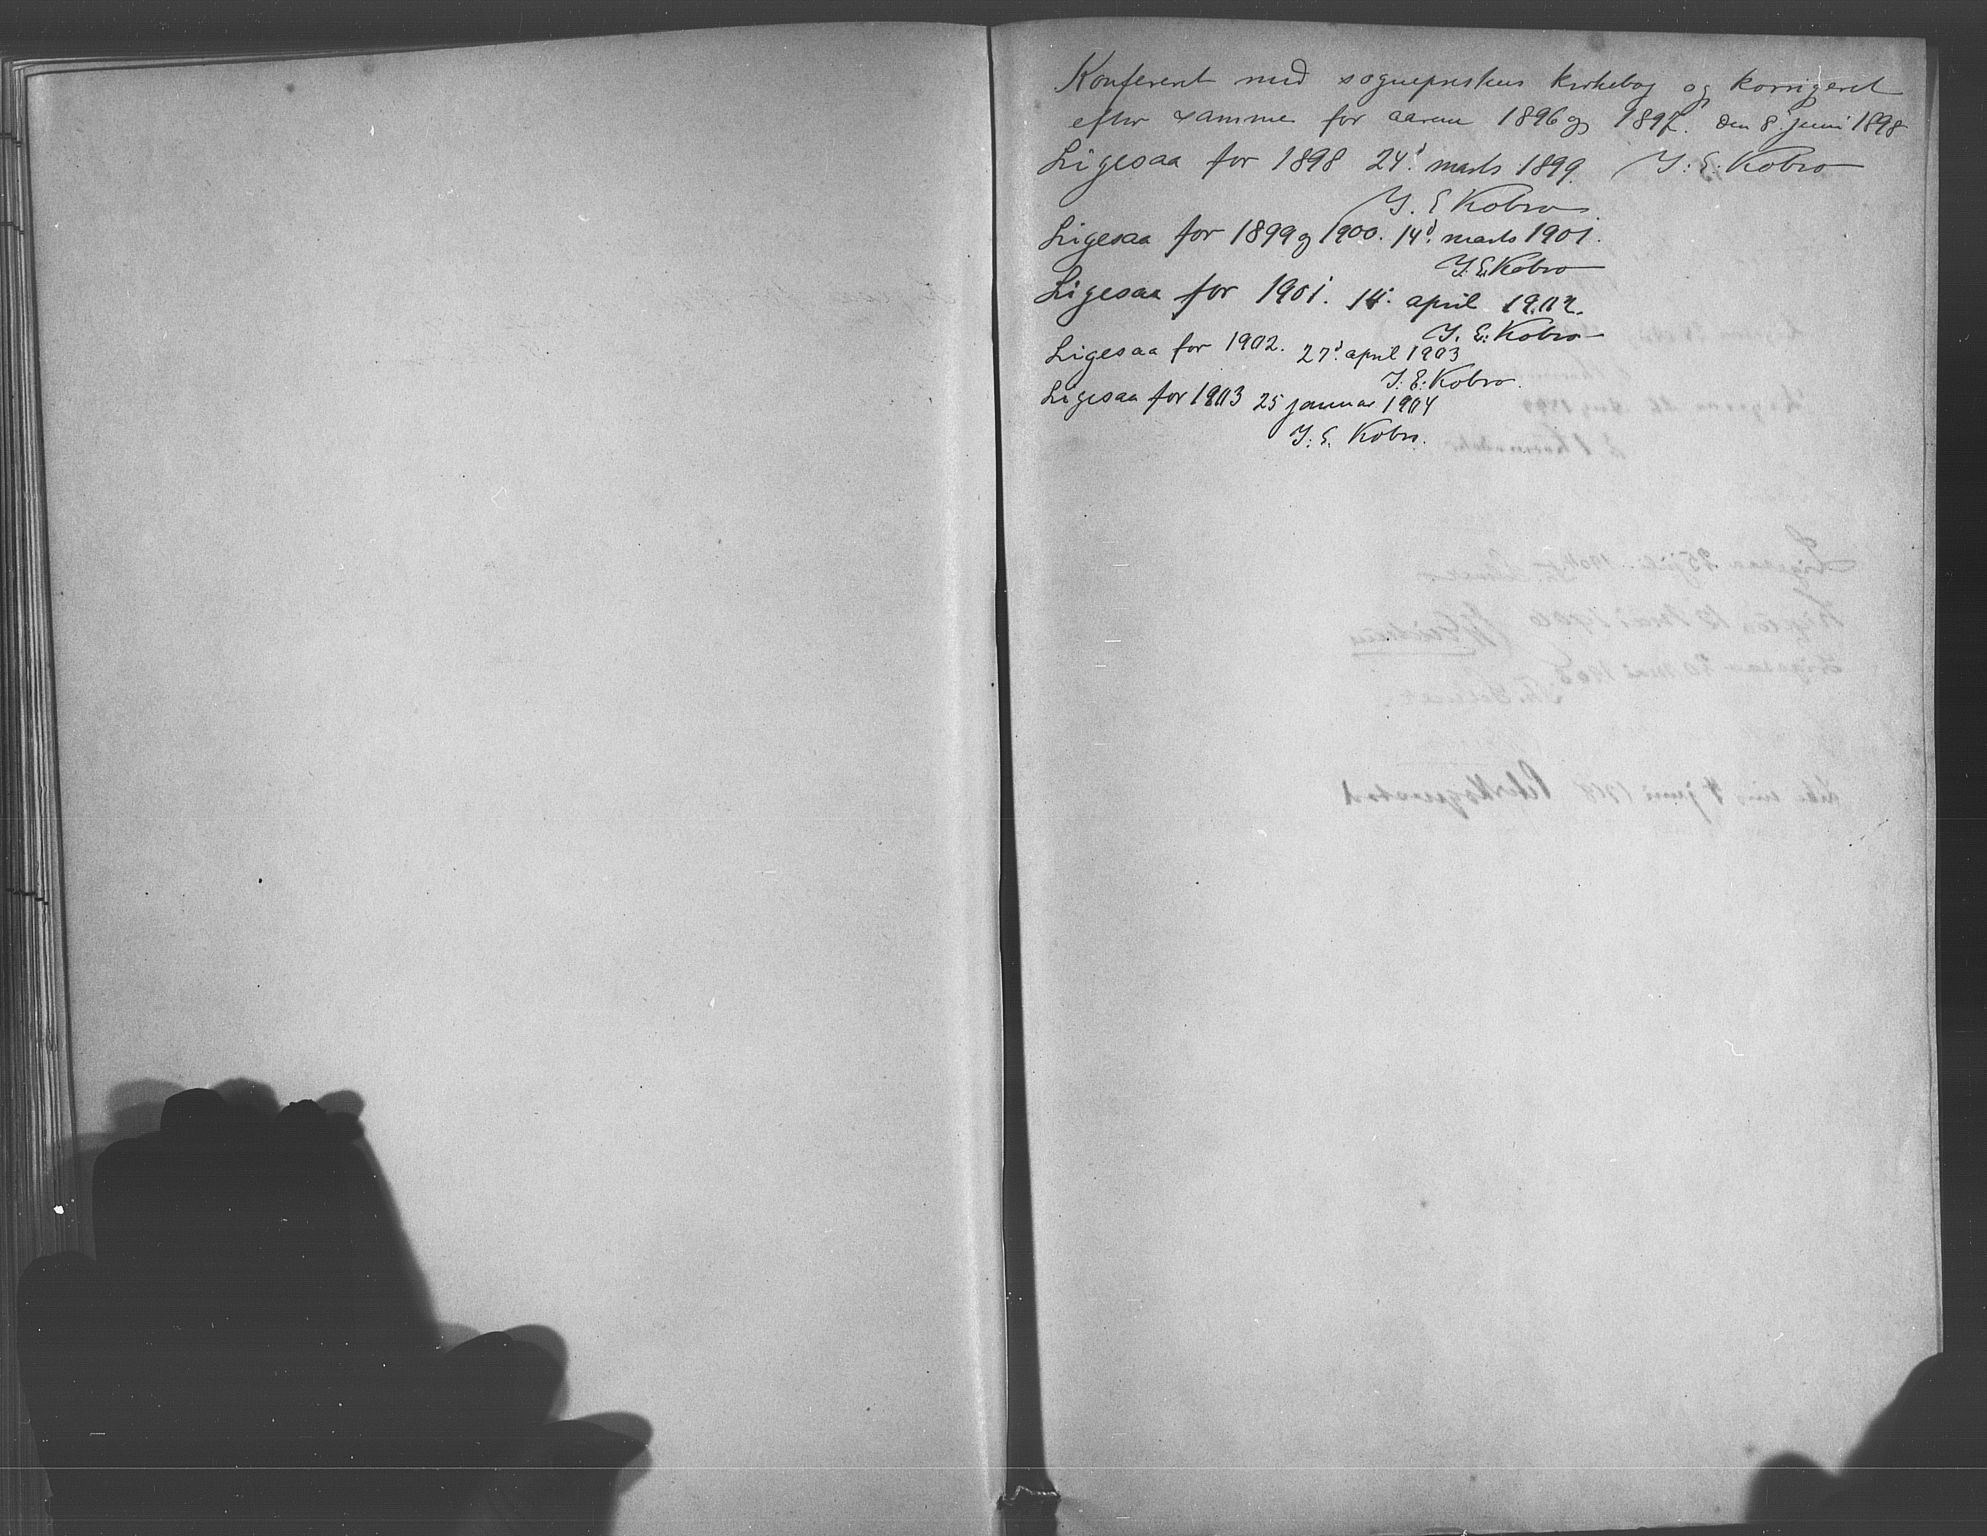 Konfereret med sogneprestens kirkebog og korrigeret
efter samme for aarene 1896 og 1897. den 8. juni 1898
Ligesaa for 1898 24d. marts 1899. I. E. Kobro
I. E Kobro.
Ligesaa for 1899 og 1900. 14d. marts 1901.
I. E. Kobro
Ligesaa for 1901. 14. april 1902.
I. E. Kobro
Ligesaa for 1902. 27d. april 1903
I. E. Kobro.
Ligesaa for 1903 25 januar 1904
I. E. Kobro.